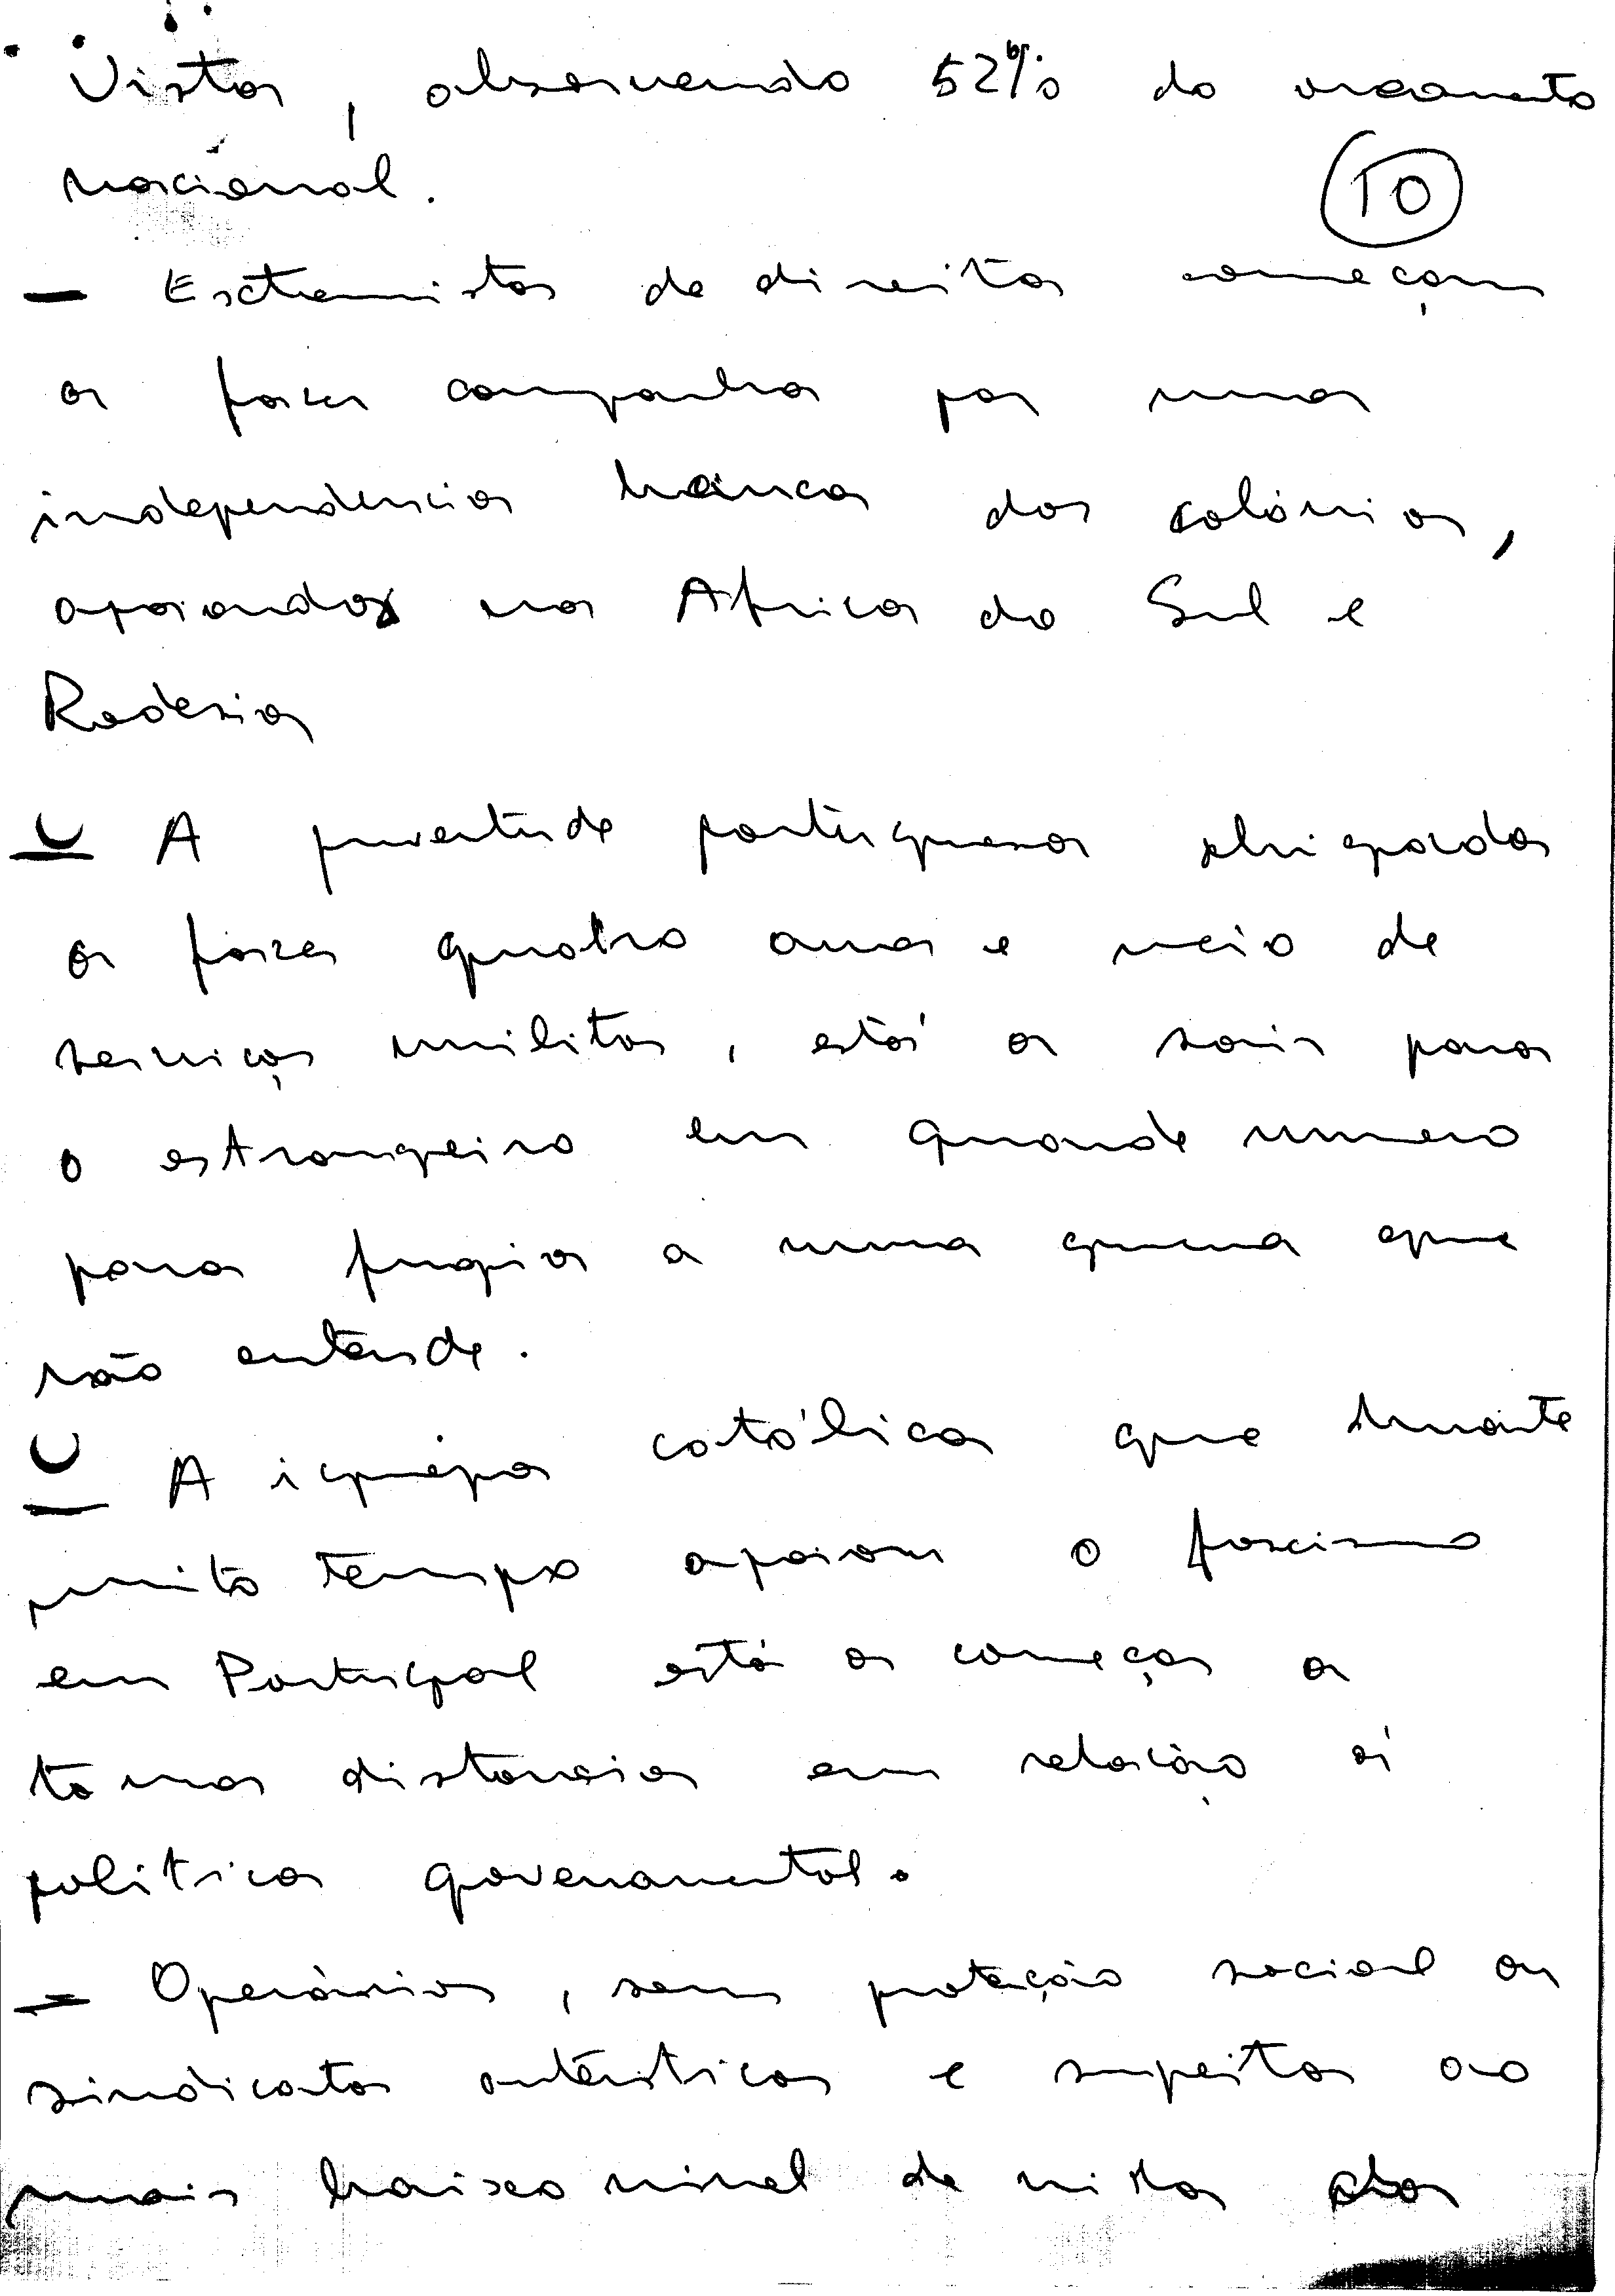 vista, absorvendo 52% do orçamento
nacional.
10
— Extremistas de direita começam
a fazer campanha por uma
independência branca das colónias,
apoiandos na Africa do Sul e
Rodesia
— A juventude portuguesa obrigada
a fazer quatro anos e meio de
serviço militar, está a sair para
o estrangeiro em grande numero
para fugir a uma guerra que
não entende.
— A igreja católica que durante
muito tempo apoiou o fascismo
em Portugal está a começar a
tomar distancia em relação á
politica governamental.
— Operários, sem proteção social ou
sindicatos autênticos e sujeitos ao
mais baixo nivel de vida da